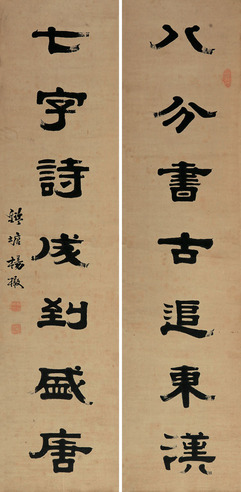 八分書古追東漢
七字詩成到盛唐
錢塘楊